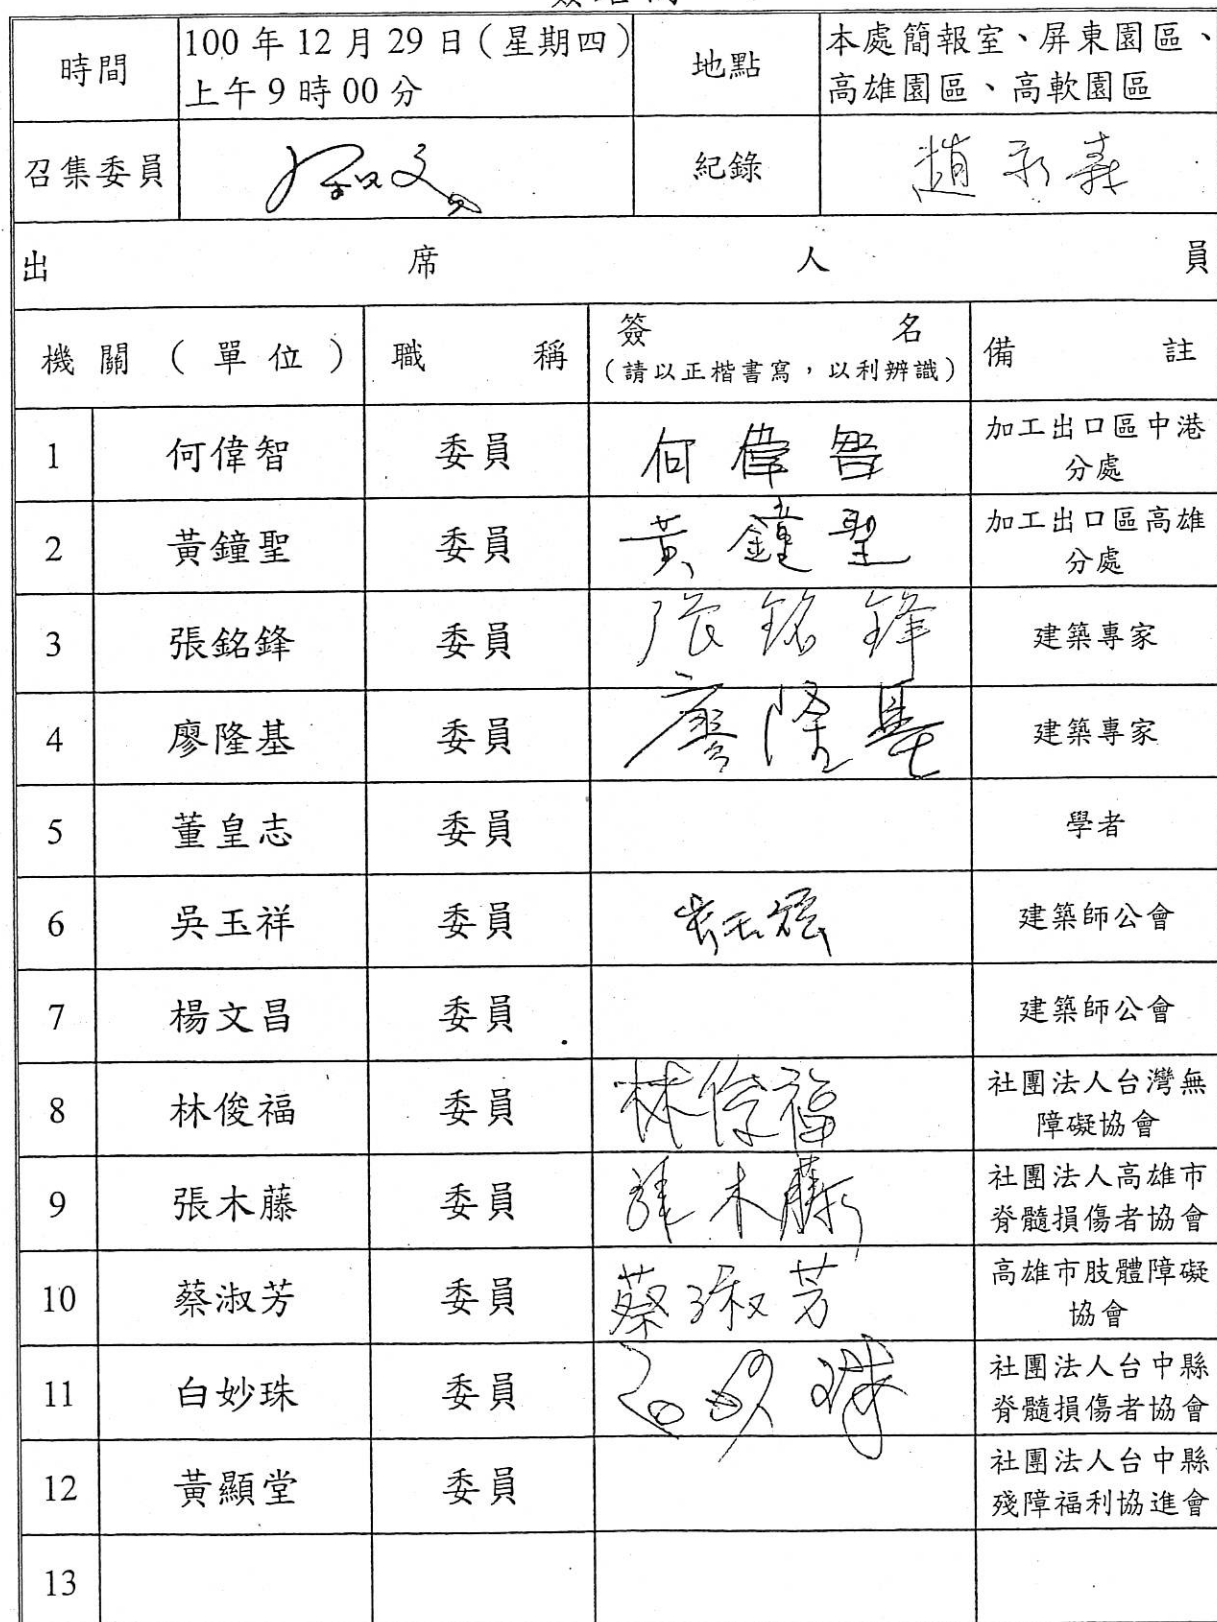 時間
100 年 12 月 29 日（星期四）
上午 9 時 00 分
地點
本處簡報室、屏東園區、
高雄園區、高軟園區
召集委員
紀錄
趙
出席人員
機關（單位）
職稱
簽名
（請以正楷書寫，以利辨識）
備註
1 何偉智 委員 何偉智
加工出口區中港
分處
2 黃鐘聖 委員 黃鐘聖
加工出口區高雄
分處
3 張銘鋒 委員 張銘鋒 建築專家
4 廖隆基 委員 廖隆基 建築專家
5 董皇志 委員 學者
6 吳玉祥 委員 建築師公會
7 楊文昌 委員 建築師公會
8 林俊福 委員 林俊福
社團法人台灣無
障礙協會
9 張木藤 委員 張木藤
社團法人高雄市
脊髓損傷者協會
10 蔡淑芳 委員 蔡淑芳
高雄市肢體障礙
協會
11 白妙珠 委員 白妙珠
社團法人台中縣
脊髓損傷者協會
12 黃顯堂 委員
社團法人台中縣
殘障福利協進會
13